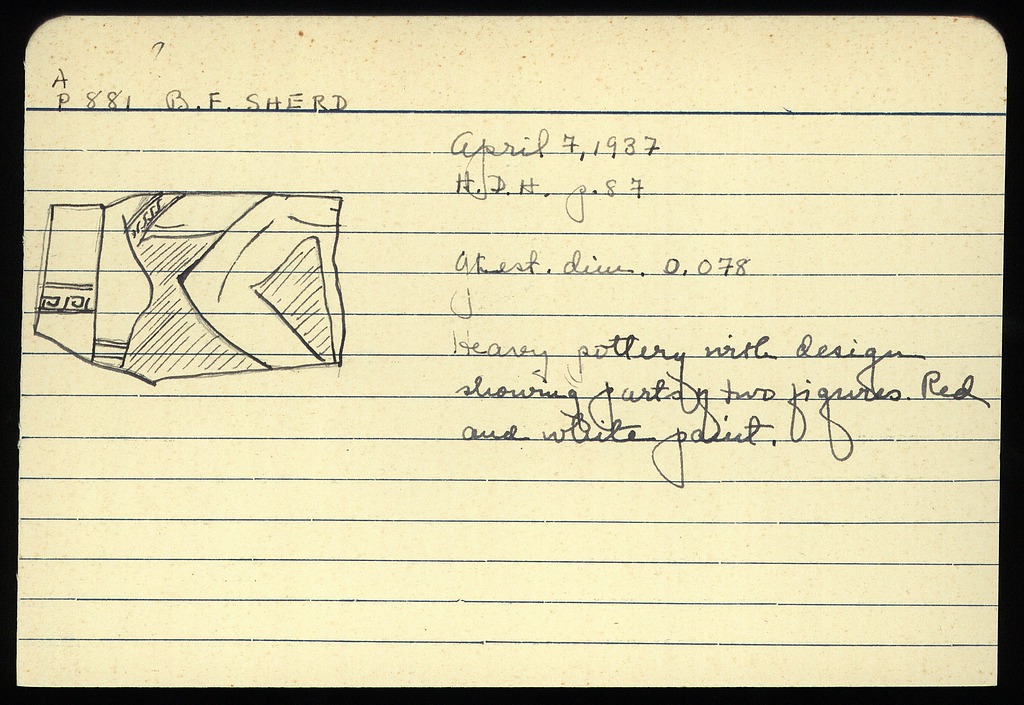 ?
A
P 881 B.F. SHERD
April 7, 1937
H.D.H. p. 87
Gtest. dim. 0.078
Heavy pottery with design
showing parts of two figures. Red
and white paint.